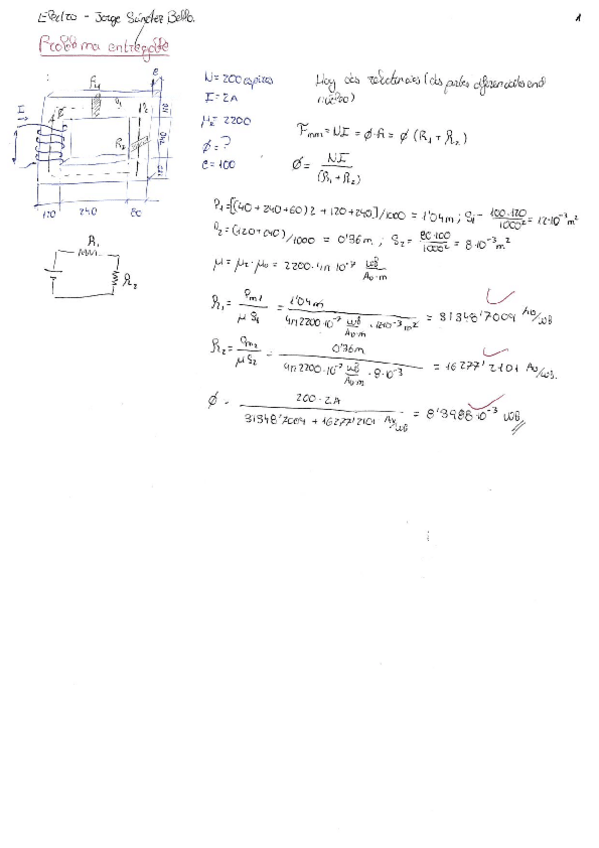 Electro - Jorge Sánchez Bello.
1
Problema entregable
N = 200 espiras
I = 2A
μr = 2200
φ = ?
e = 100
Hay dos reluctancias (dos partes diferenciadas en el núcleo)
Fmm = NI = φ·R = φ (R1 + R2)
φ = NI / (R1 + R2)
120 240 80
R1
R2
l1 = [(40 + 240 + 60) 2 + 120 + 240] / 1000 = 1'04 m ; S1 = 100·120 / 1000² = 12·10⁻³ m²
l2 = (120 + 240) / 1000 = 0'36 m ; S2 = 80·100 / 1000² = 8·10⁻³ m²
μ = μr · μ0 = 2200 · 4π 10⁻⁷ wb / Av·m
R1 = lm1 / μ S1 = 1'04 m / 4π 2200·10⁻⁷ wb/Av·m · 12·10⁻³ m² = 31348'7009 Av/wb
R2 = lm2 / μ S2 = 0'36 m / 4π 2200·10⁻⁷ wb/Av·m · 8·10⁻³ = 16277'2101 Av/wb.
φ = 200 · 2A / 31348'7009 + 16277'2101 Av/wb = 8'3988·10⁻³ wb